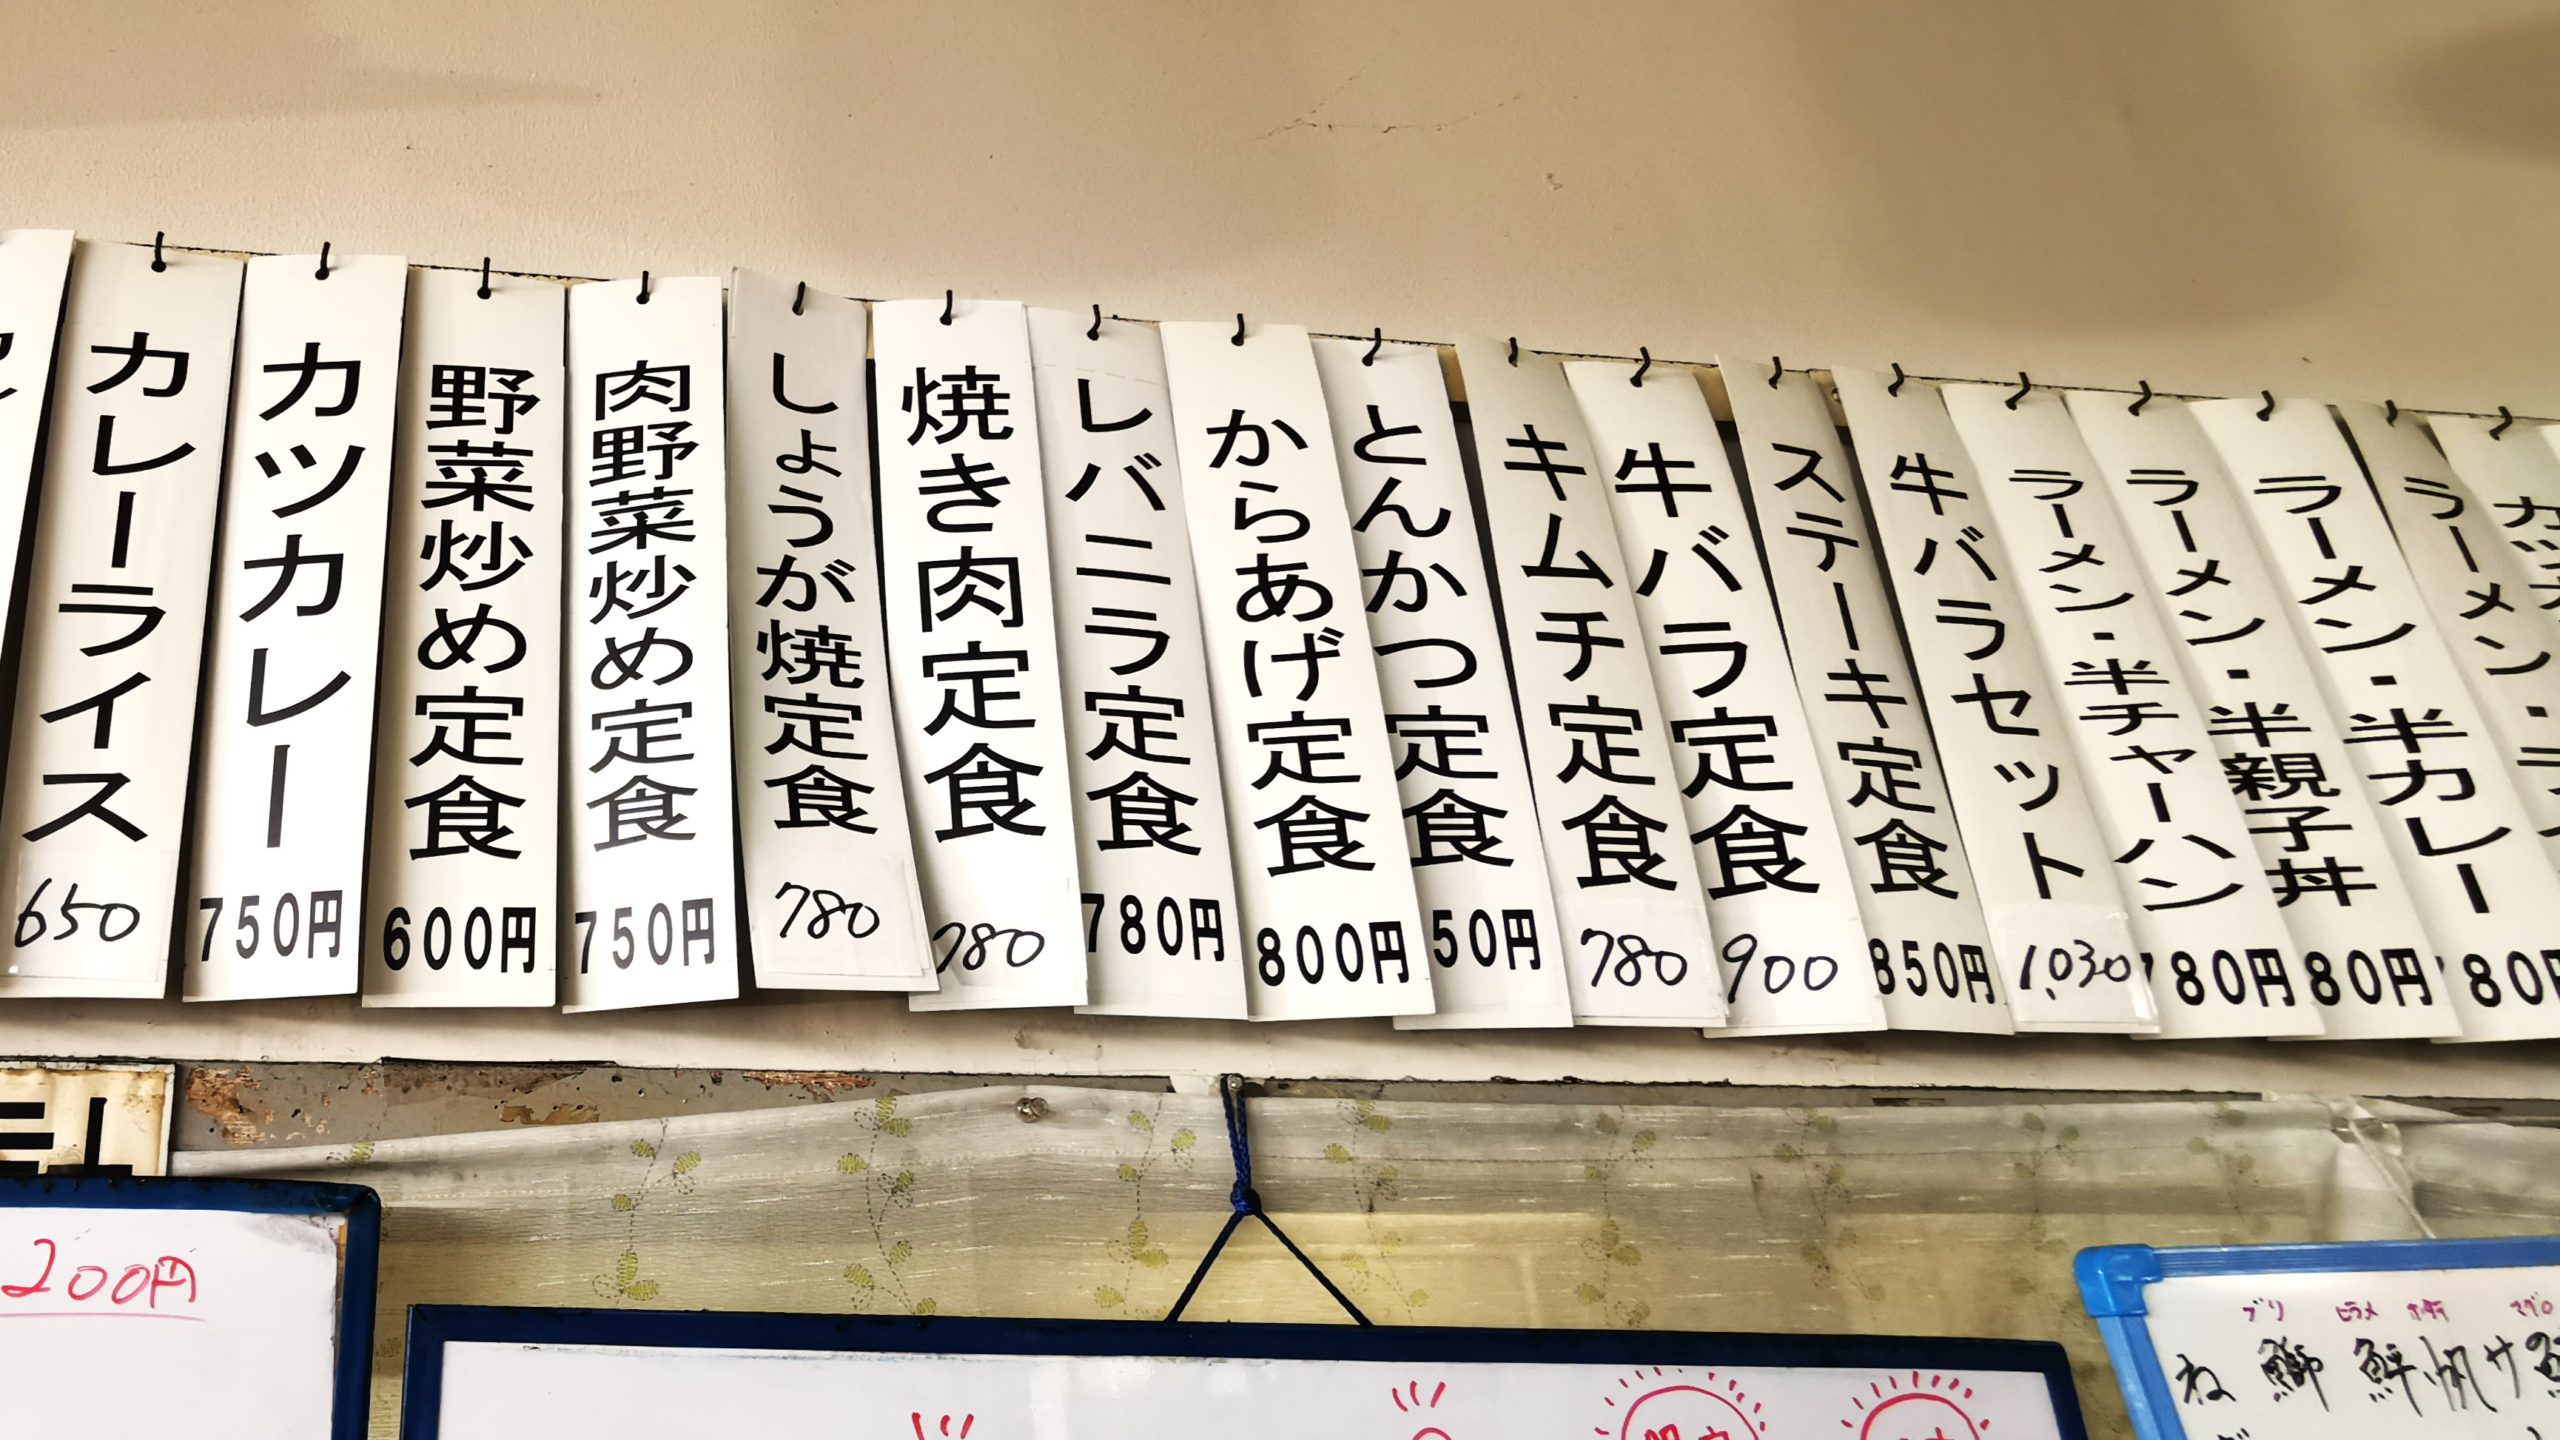 カレーライス
650
カツカレー
750円
野菜炒め定食
600円
肉野菜炒め定食
750円
しょうが焼定食
780
焼き肉定食
780
レバニラ定食
780円
からあげ定食
800円
とんかつ定食
50円
キムチ定食
780
牛バラ定食
900
ステーキ定食
850円
牛バラセット
1,030
ラーメン・半チャーハン
80円
ラーメン・半親子丼
80円
ラーメン・半カレー
80円
ラーメン・
200円
ブリ ヒラメ ホタテ マグロ